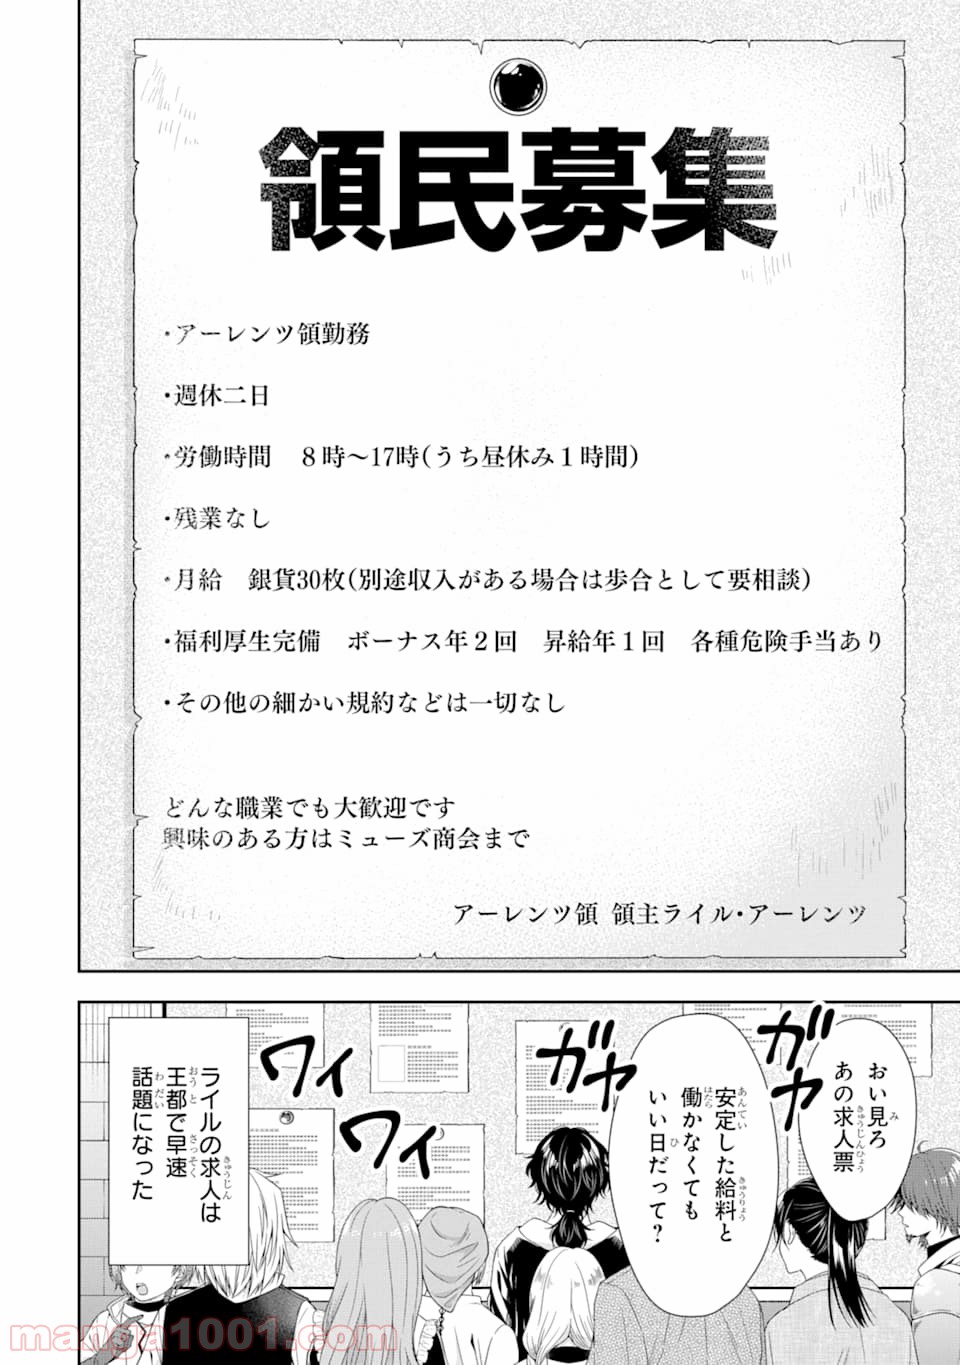 領民募集
・アーレンツ領勤務
・週休二日
・労働時間　８時～17時(うち昼休み１時間)
・残業なし
・月給　銀貨30枚(別途収入がある場合は歩合として要相談)
・福利厚生完備　ボーナス年２回　昇給年１回　各種危険手当あり
・その他の細かい規約などは一切なし
どんな職業でも大歓迎です
興味のある方はミューズ商会まで
アーレンツ領 領主ライル・アーレンツ
おい見ろ
あの求人票
ガヤ
安定した給料と
働かなくても
いい日だって？
ガヤ
ワイ
ワイ
ライルの求人は
王都で早速
話題になった
manga1001.com